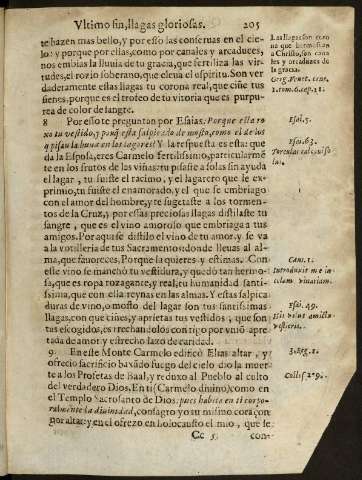 Vltimo fin, llagas gloriosas. 205
te hazen mas bello, y por esso las conseruas en el cie-
lo: y porque por ellas, como por canales y arcaduces,
nos embias la lluuia de tu gracia, que fertiliza las vir-
tudes, el rozio soberano, que eleua el espiritu. Son ver
daderamente estas llagas tu corona real, que ciñe tus
sienes, porque es el trofeo de tu vitoria que es purpu-
rea de color de sangre.
8 Por esso te preguntan por Esaias. Porque esta ro
xo tu vestido, y porq̃ esta salpicado de mosto, como el de los
q̃ pisan la huua en los lagares? Y la respuesta es esta: que
da la Esposa, eres Carmelo fertilissimo, particularmẽ
te en los frutos de las viñas: tu pisaste a solas sin ayuda
el lagar, tu fuiste el racimo, y el lagarero que le ex-
primio, tu fuiste el enamorado, y el que se embriago
con el amor del hombre, y te sugetaste a los tormen-
tos de la Cruz, y por estas preciosas llagas distilaste tu
sangre, que es el vino amoroso que embriaga a tus
amigos. Por aqui se distilo el vino de tu amor, y se va
a la votilleria de tus Sacramentos: donde lleuas al al-
ma, que fauoreces, Porque la quieres y estimas. Con
esse vino se manchò tu vestidura, y quedò tan hermo-
sa, que es ropa rozagante, y real, tu humanidad santi-
ssima, que con ella reynas en las almas. Y estas salpica
duras de vino, o mosto del lagar son tus santissimas
llagas, con que ciñes, y aprietas tus vestidos, que son
tus escogidos, estrechandolos contigo por vniõ apre
tada de amor, y estrecho lazo de caridad.
9. En este Monte Carmelo edificò Elias altar, y
ofrecio sacrificio baxãdo fuego del cielo dio la muer
te a los Profetas de Baal, y reduxo al Pueblo al culto
del verdadero Dios. En ti (Carmelo diuino) como en
el Templo Sacrosanto de Dios, pues habita en ti corpo-
ralmente la diuinidad, consagro yo su mismo coraçon
por altar: y en el ofrezo en holocausto el mio, que se
Cc 5 con-
Las llagas son coro
na que hermosean
a Christo, son cana
les y arcaduzes de
la gracia.
1. tom. 6. cap. 11.
Esai. 5.
Esai. 63.
Torcular calcaui so
lus.
Cant. 1.
Introduxit me in
cellam vinariam.
Esai. 49.
His velut amictu
vestieris.
3. Reg. 1.
Collos. 2. 9.